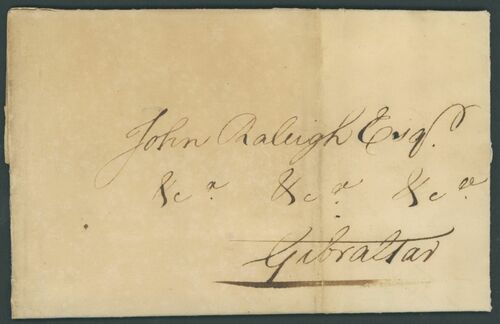 John Raleigh Esqr.
&ca. &ca. &ca.
Gibraltar